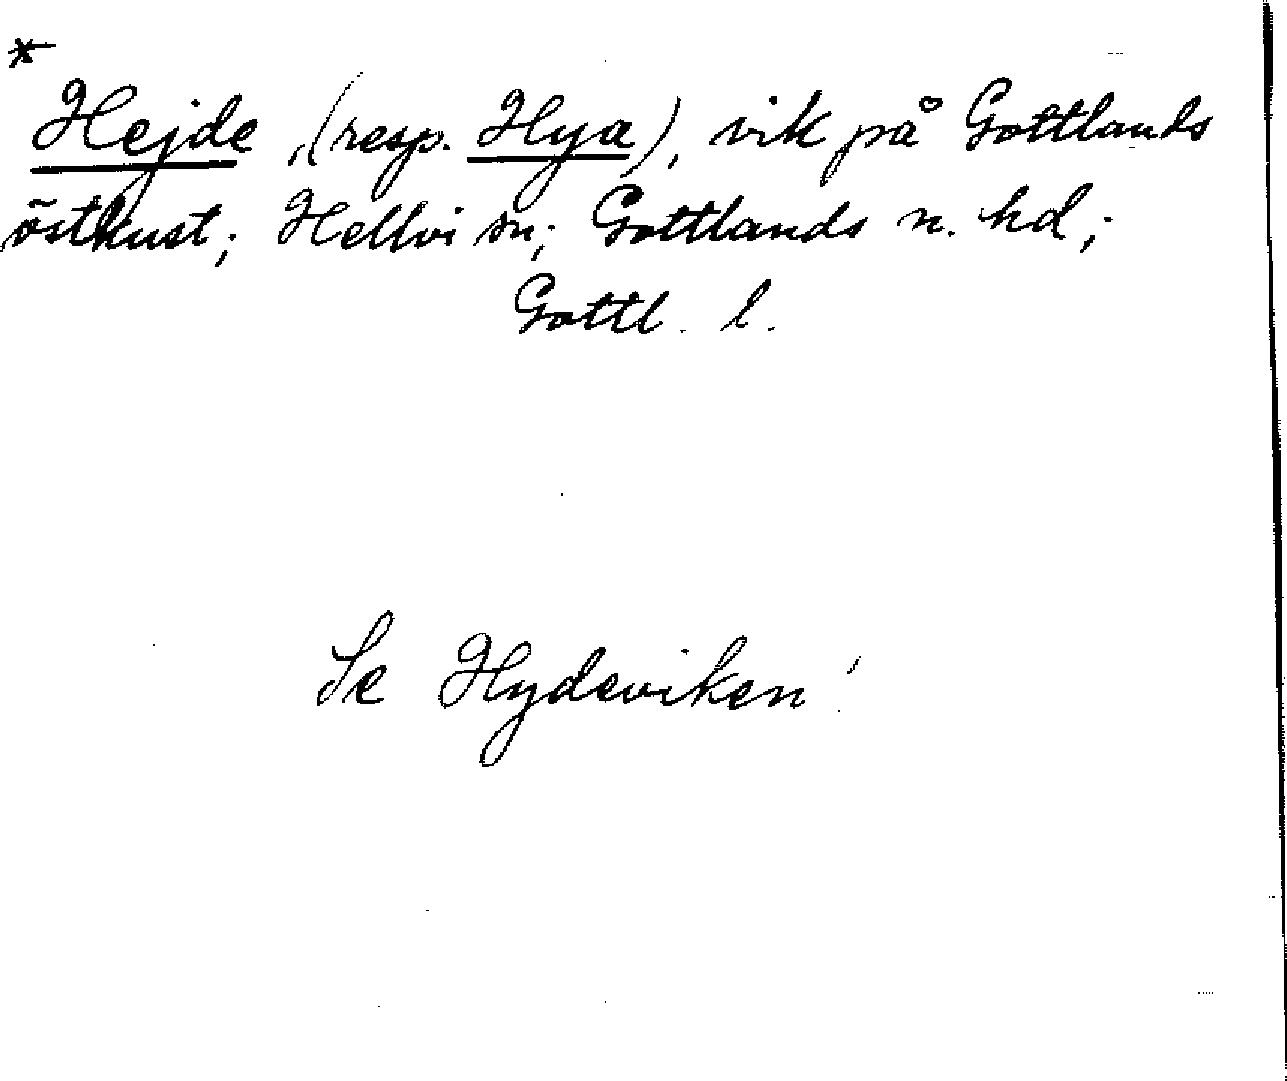 *
Hejde, (resp. Hya), vik på Gottlands
östkust; Hellvi sn; Gottlands n. hd;
Gottl. l.
Se Hydeviken!